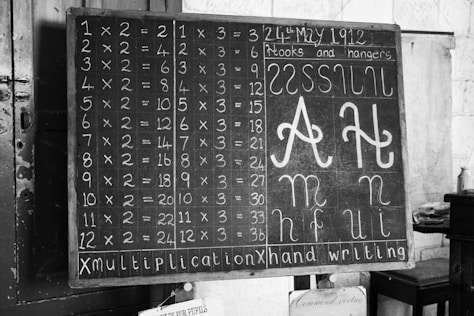 1 x 2 = 2
2 x 2 = 4
3 x 2 = 6
4 x 2 = 8
5 x 2 = 10
6 x 2 = 12
7 x 2 = 14
8 x 2 = 16
9 x 2 = 18
10 x 2 = 20
11 x 2 = 22
12 x 2 = 24
1 x 3 = 3
2 x 3 = 6
3 x 3 = 9
4 x 3 = 12
5 x 3 = 15
6 x 3 = 18
7 x 3 = 21
8 x 3 = 24
9 x 3 = 27
10 x 3 = 30
11 x 3 = 33
12 x 3 = 36
24th MAY 1912
Hooks and hangers
A H
m n
h f u i
X multiplication X hand writing
FOR PUPILS